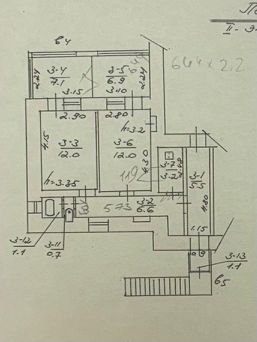 II-
в4
644 x 2.2
3-4
7.1
3-5
6.9
2.24
2.24
3.15
3.10
2.90
2.80
h=3.2
4.15
3-3
12.0
3-6
12.0
4.30
h=3.35
3-7
3.2
3-1
5.5
4.80
575
3-2
6.6
1.15
3-12
1.1
3-11
0.7
3-13
1.1
в5